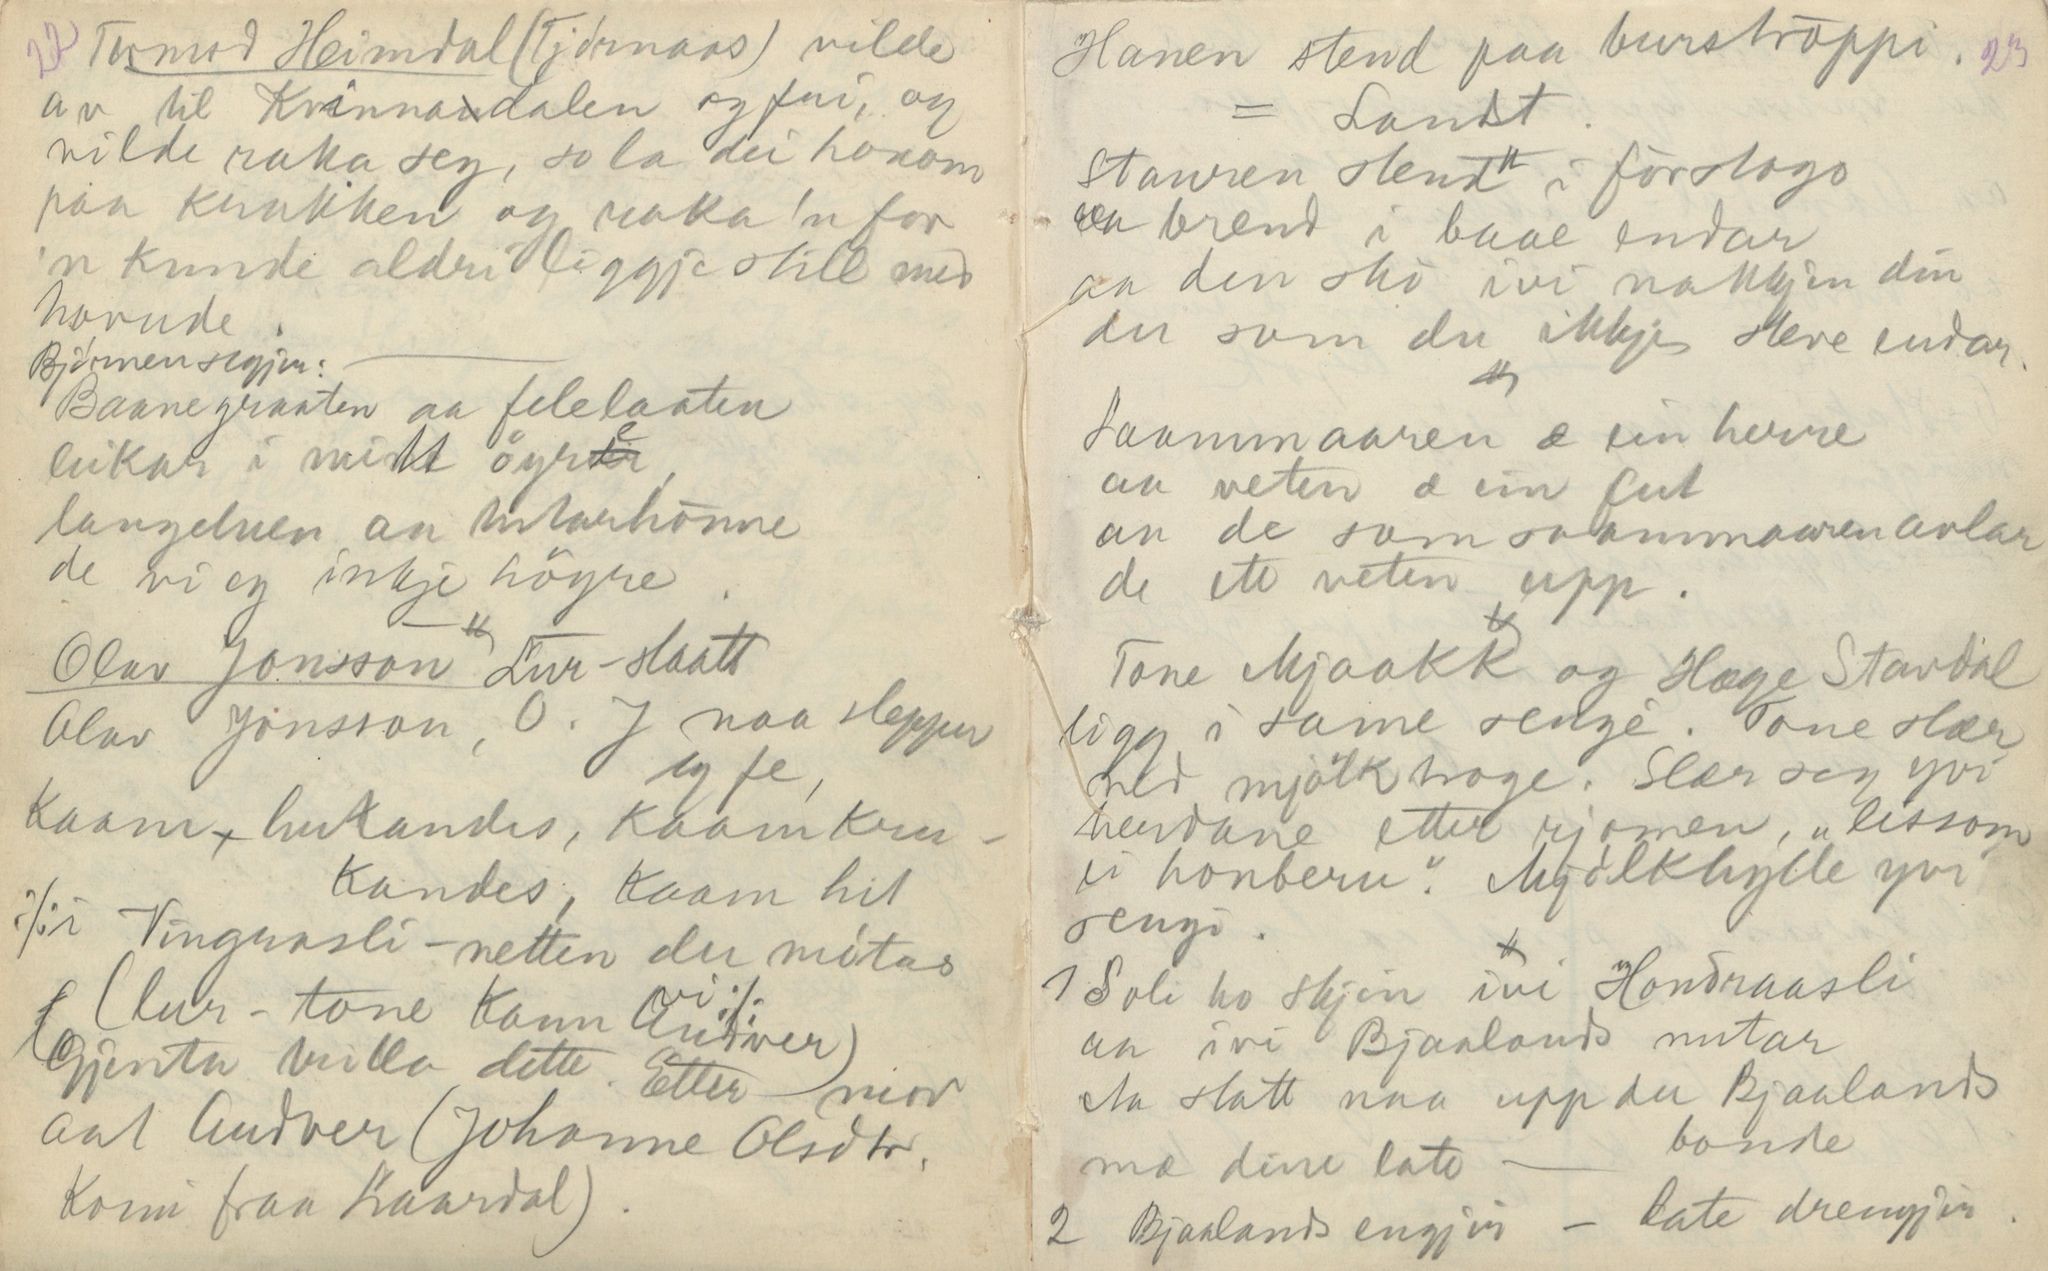 22 Tormod Heimdal (Tjórnaas) vilde
av til Kvinnadalen og fri, og
vilde raka seg, so la dei honom
paa krakken og raka 'n for
'n kunde aldri liggja still med
hovude.
Bjórnen segjer:
Baanegraaten aa felelaaten
leikar i mitt öyre,
langeluen aa
de vi eg inkje högre.
Olav Jonsson Lur-slaatt
Olav Jonsson, O. J naa slepper
eg fe,
Kaam hukandes, kaam kru-
kandes, kaam hit
i Vinguasli-netten du mötas
vi
(lur-tone kann Audver)
Gjenta dette. Etter mor
aat Audver (Johanne Olsdtr.
komi fraa Haardal).
Hanen stend paa burströppi. 23
= Landt.
Stauren stend i förstogo
aa brend i baae endar
aa den ski ivi nakkjen din
du som du ikkje steve endar.
Saammaaren æ ein herre
aa veten æ ein fut
aa de som saammaaren avlar
de ete veten upp.
Tone Mjaakk og Hæge Stavdal
ligg i same sengé. Tone slær
ned mjölktroge. Slær seg yvi
herdane etter rjomen, "lissom
ei honberu". Mjölkhylle yvi
sengi.
1 Soli ho skjin ivi Hondraasli
aa ivi Bjaalands nutar
statt naa upp du Bjaalands
bonde
mæ dine late —
2 Bjaalands engjir – late drengjir.